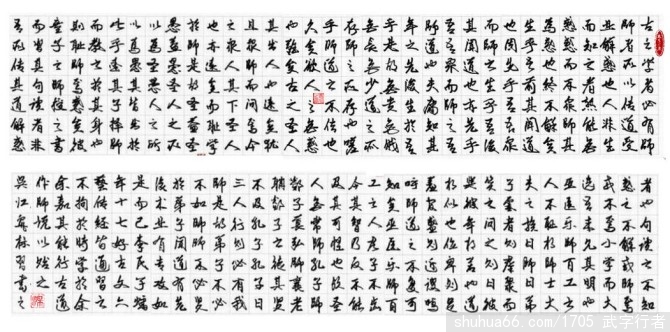 古之學者必有師
師者所以傳道受
業解惑也人非生
而知之者孰能無
惑惑而不從師其
為惑也終不解矣
生乎吾前其聞道
也固先乎吾吾從
而師之生乎吾後
其聞道也亦先乎
吾吾從而師之吾
師道也夫庸知其
年之先後生於吾
乎是故無貴無賤
無長無少道之所
存師之所存也嗟
乎師道之不傳也
久矣欲人之無惑
也難矣古之聖人
其出人也遠矣猶
且從師而問焉今
之眾人其下聖人
也亦遠矣而恥學
於師是故聖益聖
愚益愚聖人之所
以為聖愚人之所
以為愚其皆出於
此乎愛其子擇師
而教之於其身也
則恥師焉惑矣彼
童子之師授之書
而習其句讀者非
吾所傳其道解惑
者也句讀之不知
惑之不解或師焉
或不焉小學而大
遺吾未見其明也
巫醫樂師百工之
人不恥相師士大
夫之族曰師曰弟
子云者則群聚而
笑之問之則曰彼
與彼年相若也道
相似也位卑則足
羞官盛則近諛嗚
呼師道之不復可
知矣巫醫樂師百
工之人君子不齒
今其智乃反不能
及其可怪也歟聖
人無常師孔子師
郯子萇弘師襄老
聃郯子之徒其賢
不及孔子孔子曰
三人行則必有我
師是故弟子不必
不如師師不必賢
於弟子聞道有先
後術業有專攻如
是而已李氏子蟠
年十七好古文六
藝經傳皆通習之
不拘於時學於余
余嘉其能行古道
作師說以貽之
吳江林習書之
shuhua66.com/1705 武字行者